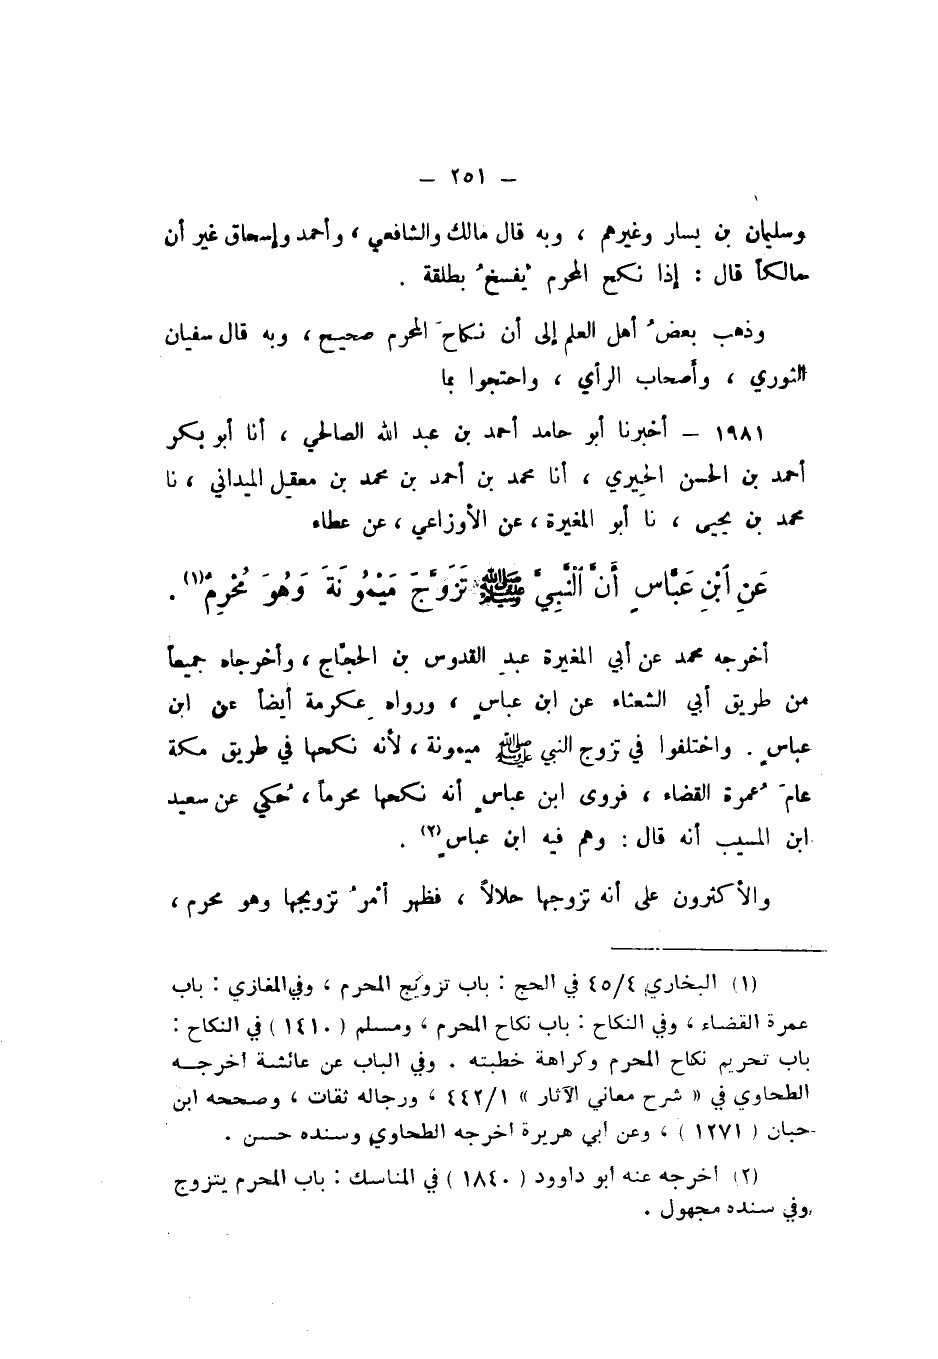 – ٢٥١ –
وسليمان بن يسار وغيرهم ، وبه قال مالك والشافعي ، وأحمد وإسحاق غير أن
مالكاً قال : إذا نكح المحرم يُفسخُ بطلقة .
وذهب بعضُ أهل العلم إلى أن نكاحَ المحرم صحيح ، وبه قال سفيان
الثوري ، وأصحاب الرأي ، واحتجوا بما
١٩٨١ – أخبرنا أبو حامد أحمد بن عبد الله الصالحي ، أنا أبو بكر
أحمد بن الحسن الحِيري ، أنا محمد بن أحمد بن محمد بن معقل الميداني ، نا
محمد بن يحيى ، نا أبو المغيرة ، عن الأوزاعي ، عن عطاء
عَنِ ٱبْنِ عَبَّاسٍ أَنَّ ٱلنَّبِيَّ ﷺ تَزَوَّجَ مَيْمُونَةَ وَهُوَ مُحْرِمٌ(١) .
أخرجه محمد عن أبي المغيرة عبدِ القدوس بن الحجّاج ، وأخرجاه جميعاً
من طريق أبي الشعثاء عن ابن عباسٍ ، ورواه عكرمة أيضاً عن ابن
عباسٍ . واختلفوا في تزوج النبي ﷺ ميمونة ، لأنه نكحها في طريق مكة
عامَ عُمرة القضاء ، فروى ابن عباسٍ أنه نكحها محرماً ، حُكي عن سعيد
ابن المسيب أنه قال : وهم فيه ابن عباسٍ(٢) .
والأكثرون على أنه تزوجها حلالاً ، فظهر أمْرُ تزويجها وهو محرم ،
(١) البخاري ٤٥/٤ في الحج : باب تزويج المحرم ، وفي المغازي : باب
عمرة القضاء ، وفي النكاح : باب نكاح المحرم ، ومسلم ( ١٤١٠ ) في النكاح :
باب تحريم نكاح المحرم وكراهة خطبته . وفي الباب عن عائشة أخرجـه
الطحاوي في « شرح معاني الآثار » ٤٤٢/١ ، ورجاله ثقات ، وصححه ابن
حبان ( ١٢٧١ ) ، وعن أبي هريرة أخرجه الطحاوي وسنده حسن .
(٢) أخرجه عنه أبو داوود ( ١٨٤٠ ) في المناسك : باب المحرم يتزوج
وفي سنده مجهول .